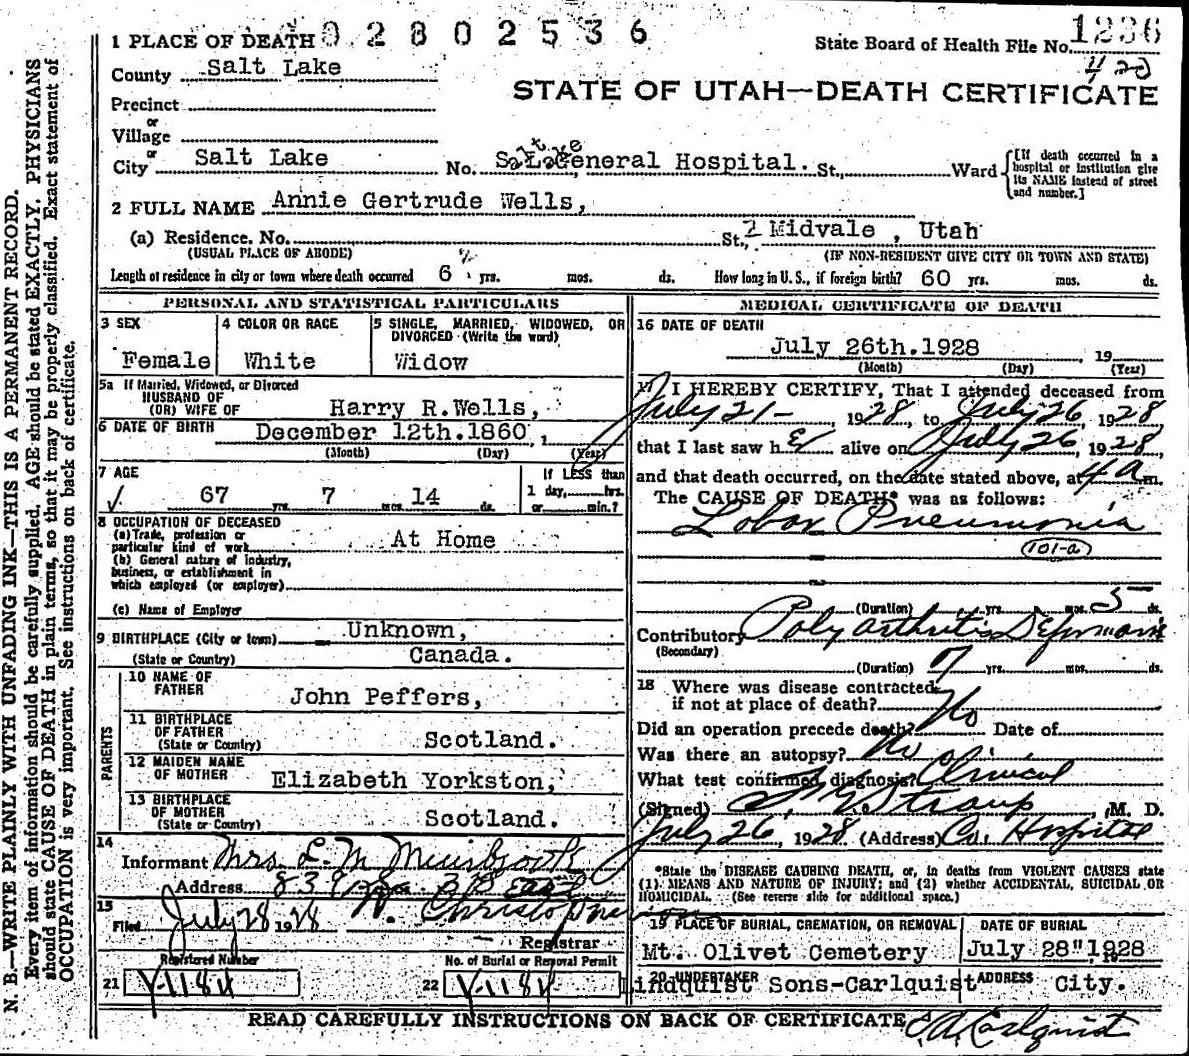 1 PLACE OF DEATH 0 2 8 0 2 5 3 6
State Board of Health File No. 1236
420
County Salt Lake
STATE OF UTAH—DEATH CERTIFICATE
Precinct
or
Village
or
City Salt Lake No. Salt Lake General Hospital. St., Ward
[If death occurred in a hospital or institution give its NAME instead of street and number.]
2 FULL NAME Annie Gertrude Wells,
(a) Residence. No. St., 2 Midvale , Utah
(USUAL PLACE OF ABODE) (IF NON-RESIDENT GIVE CITY OR TOWN AND STATE)
Length of residence in city or town where death occurred 6 yrs. mos. ds. How long in U. S., if foreign birth? 60 yrs. mos. ds.
PERSONAL AND STATISTICAL PARTICULARS
3 SEX Female
4 COLOR OR RACE White
5 SINGLE, MARRIED, WIDOWED, OR DIVORCED (Write the word) Widow
5a If Married, Widowed, or Divorced
HUSBAND OF
(OR) WIFE OF Harry R.Wells,
6 DATE OF BIRTH December 12th.1860,
(Month) (Day) (Year)
7 AGE
67 yrs. 7 mos. 14 ds.
If LESS than 1 day, hrs. or min.?
8 OCCUPATION OF DECEASED
(a) Trade, profession or particular kind of work At Home
(b) General nature of industry, business, or establishment in which employed (or employer)
(c) Name of Employer
9 BIRTHPLACE (City or town) Unknown,
(State or Country) Canada.
PARENTS
10 NAME OF FATHER John Peffers,
11 BIRTHPLACE OF FATHER (State or Country) Scotland.
12 MAIDEN NAME OF MOTHER Elizabeth Yorkston,
13 BIRTHPLACE OF MOTHER (State or Country) Scotland.
14
Informant Mrs. L. M.
Address 839 East
15
Filed July 28 1928
Registrar
Registered Number
21 V-1184
No. of Burial or Removal Permit
22 V-1184
MEDICAL CERTIFICATE OF DEATH
16 DATE OF DEATH
July 26th.1928 , 19
(Month) (Day) (Year)
17 I HEREBY CERTIFY, That I attended deceased from
July 21- 1928 to July 26, 1928
that I last saw her alive on July 26, 1928,
and that death occurred, on the date stated above, at 4 a m.
The CAUSE OF DEATH* was as follows:
Lobar Pneumonia
101-a
(Duration) yrs. mos. 5 ds.
Contributory Poly arthritis Deformans
(Secondary)
(Duration) 7 yrs. mos. ds.
18 Where was disease contracted
if not at place of death?
Did an operation precede death? No Date of
Was there an autopsy? No
What test confirmed diagnosis? Clinical
(Signed) Straup, M. D.
July 26, 1928 (Address) Co. Hospital
*State the DISEASE CAUSING DEATH, or, in deaths from VIOLENT CAUSES state
(1) MEANS AND NATURE OF INJURY; and (2) whether ACCIDENTAL, SUICIDAL OR
HOMICIDAL. (See reverse side for additional space.)
19 PLACE OF BURIAL, CREMATION, OR REMOVAL
Mt. Olivet Cemetery
DATE OF BURIAL
July 28" 1928
20 UNDERTAKER
Lindquist Sons-Carlquist
ADDRESS City.
READ CAREFULLY INSTRUCTIONS ON BACK OF CERTIFICATE
Carlquist
N. B.—WRITE PLAINLY WITH UNFADING INK—THIS IS A PERMANENT RECORD.
Every item of information should be carefully supplied. AGE should be stated EXACTLY. PHYSICIANS
should state CAUSE OF DEATH in plain terms, so that it may be properly classified. Exact statement of
OCCUPATION is very important. See instructions on back of certificate.